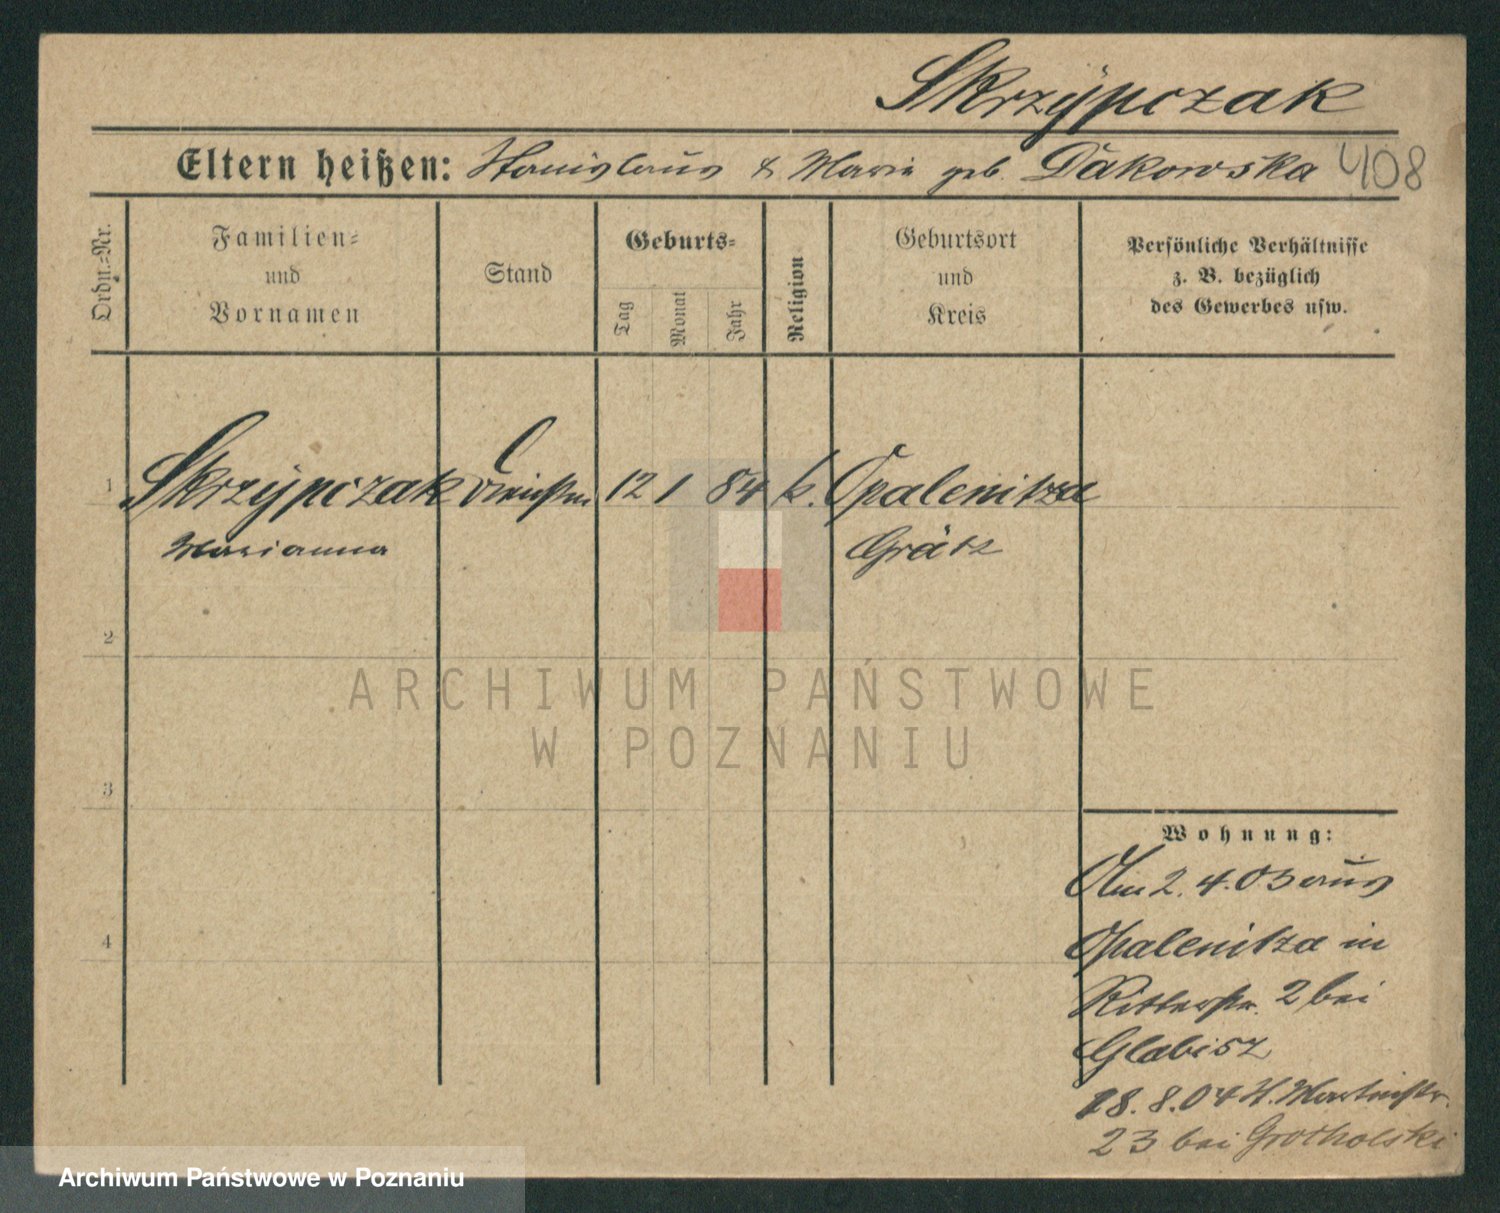 Skrzypczak
Eltern heißen: Stanislaus & Marie geb. Dakowska 408
Ordn.-Nr.
Familien-
und
Vornamen
Stand
Geburts-
Tag
Monat
Jahr
Religion
Geburtsort
und
Kreis
Persönliche Verhältnisse
z. B. bezüglich
des Gewerbes usw.
1 Skrzypczak 12 1 84 k. Opalenitza
Marianna Grätz
2
ARCHIWUM PAŃSTWOWE
W POZNANIU
3
Wohnung:
Am 2. 4. 03 aus
4
Opalenitza in
Ritterstr. 2 bei
Glabisz
18. 8. 04 St. Martinstr.
23 bei Grotholski
Archiwum Państwowe w Poznaniu